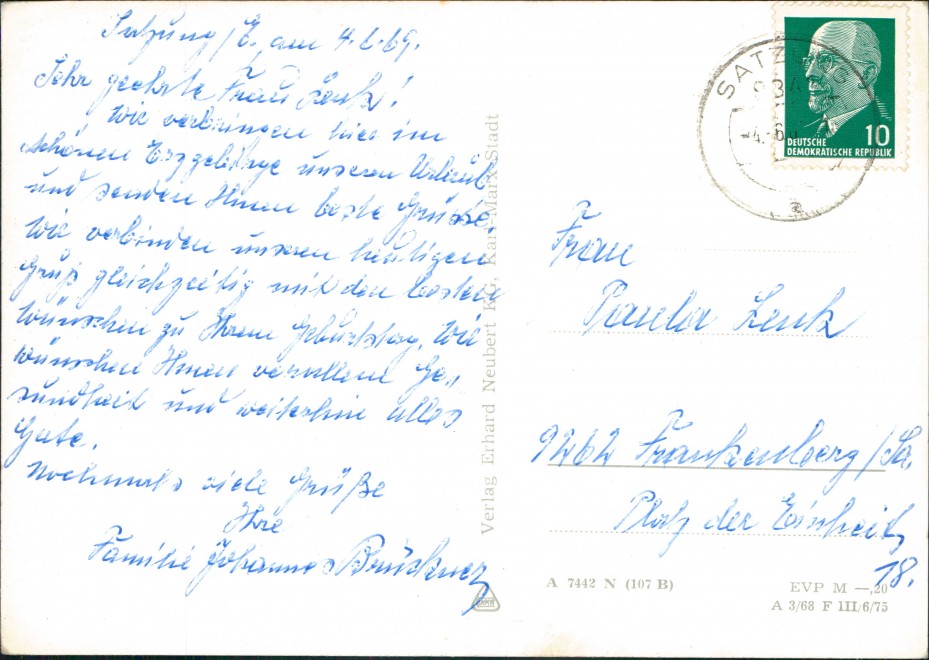 Satzung/E. am 4.6.69.
Sehr geehrte Frau Lenk!
Wir verbringen hier im
schönen Erzgebirge unseren Urlaub
und senden Ihnen beste Grüsse.
Wir verbinden unseren heutigen
Gruß gleichzeitig mit den besten
Wünschen zu Ihrem Geburtstag. Wir
wünschen Ihnen vor allem Ge„
sundheit und weiterhin alles
Gute.
Nochmals viele Grüße
Ihre
Familie Johannes Brückner
Verlag Erhard Neubert KG, Karl-Marx-Stadt
SATZUNG
934
-4.-6.6
a
10
DEUTSCHE
DEMOKRATISCHE REPUBLIK
Frau
Paula Lenk
9262 Frankenberg/Sa.
Platz der Einheit,
18.
A 7442 N (107 B)
EVP M —,20
A 3/68 F III/6/75